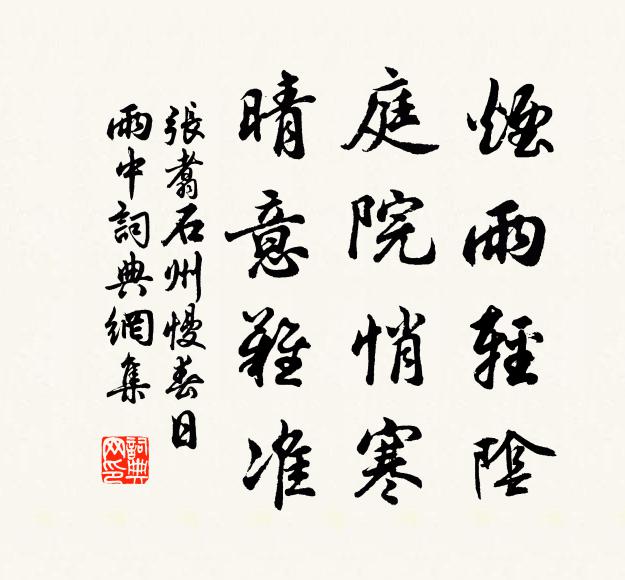 煙雨輕陰
庭院悄寒
晴意難准
張翥石州慢春日
雨中詞典網集
詞典网印